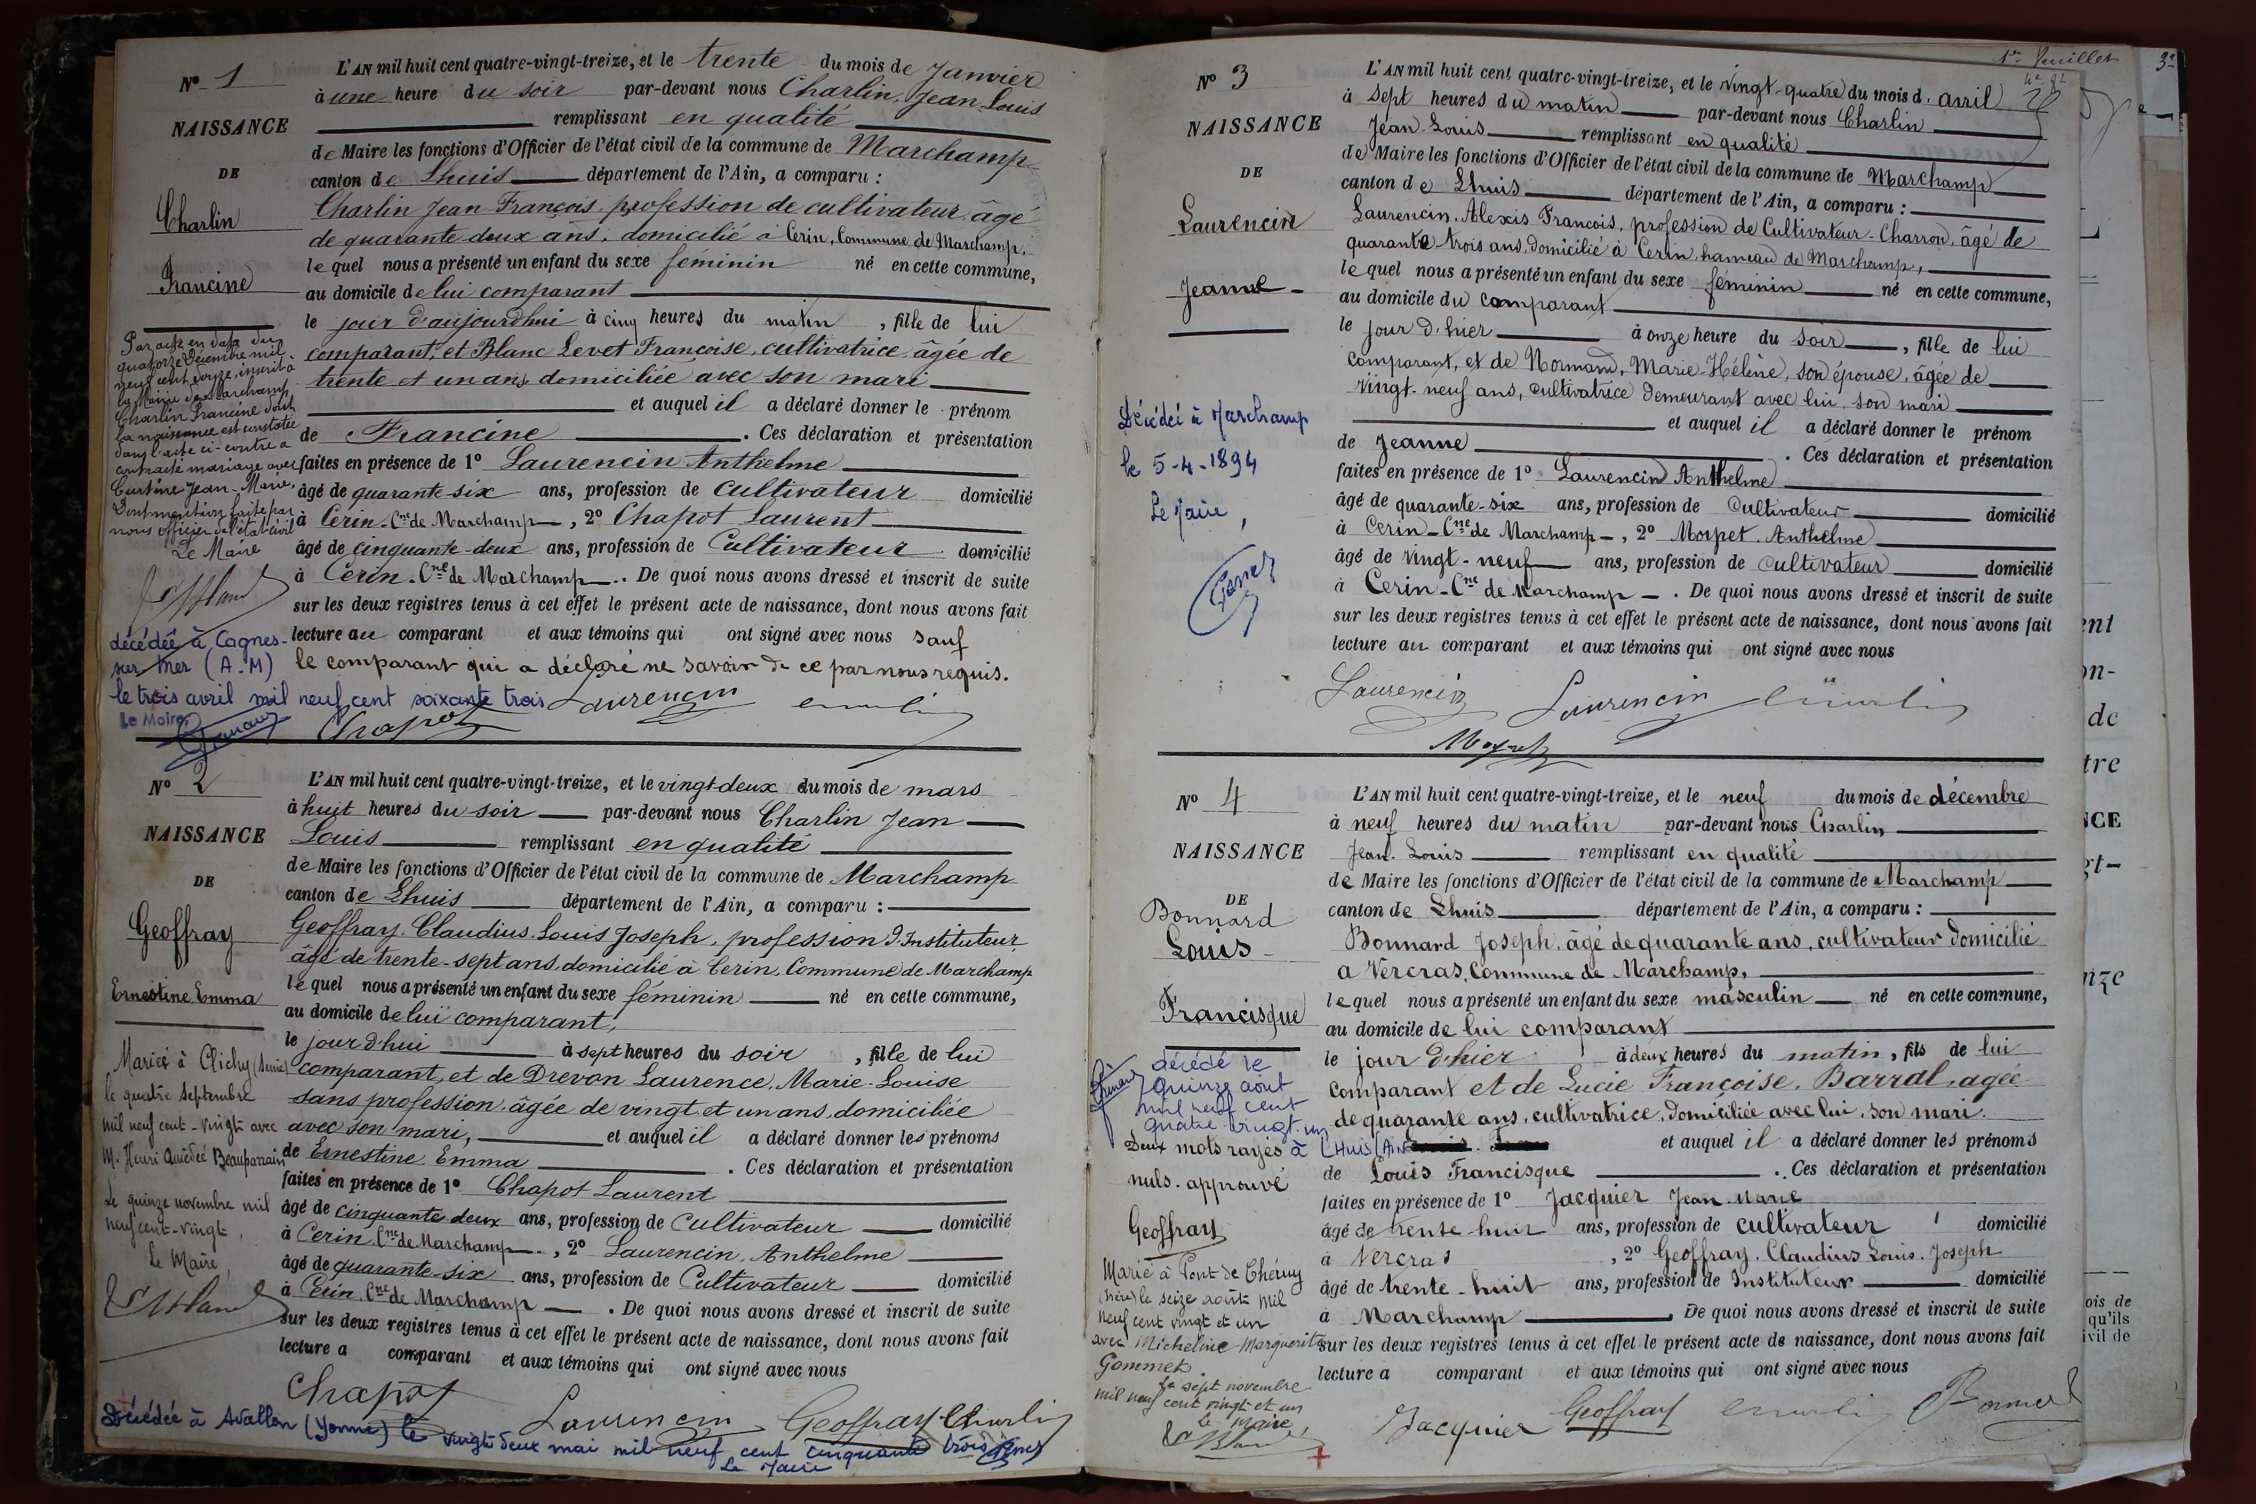 N° 1
NAISSANCE
DE
Charlin
Francine
L'AN mil huit cent quatre-vingt-treize, et le trente du mois de Janvier
à une heure du soir par-devant nous Charlin, Jean Louis
remplissant en qualité
de Maire les fonctions d'Officier de l'état civil de la commune de Marchamp
canton de Lhuis département de l'Ain, a comparu :
Charlin Jean François, profession de cultivateur, âgé
de quarante deux ans, domicilié à Cerin, Commune de Marchamp,
lequel nous a présenté un enfant du sexe féminin né en cette commune,
au domicile de lui comparant
le jour d'aujourdhui à cinq heures du matin, fille de lui
comparant, et Blanc Levet Françoise, cultivatrice, âgée de
trente et un ans domiciliée avec son mari
et auquel il a déclaré donner le prénom
de Francine. Ces déclaration et présentation
faites en présence de 1° Laurencin Anthelme
âgé de quarante-six ans, profession de cultivateur domicilié
à Cerin, Cne de Marchamp, 2° Chapot Laurent
âgé de cinquante-deux ans, profession de Cultivateur domicilié
à Cerin, Cne de Marchamp. De quoi nous avons dressé et inscrit de suite
sur les deux registres tenus à cet effet le présent acte de naissance, dont nous avons fait
lecture au comparant et aux témoins qui ont signé avec nous sauf
le comparant qui a déclaré ne savoir de ce par nous requis.
Laurencin
Chapot
Par acte en date du
quatorze Décembre mil
neuf cent douze, inscrit à
la Mairie de Marchamp
Charlin Francine dont
la naissance est constatée
dans l'acte ci-contre a
contracté mariage avec
Jean-Marie,
Dont mention faite par
nous officier de l'état civil
Le Maire
décédée à Cagnes-
sur Mer (A-M)
le trois avril mil neuf cent soixante trois
Le Maire,
N° 2
NAISSANCE
DE
Geoffray
Ernestine Emma
L'AN mil huit cent quatre-vingt-treize, et le vingt-deux du mois de mars
à huit heures du soir par-devant nous Charlin Jean
Louis remplissant en qualité
de Maire les fonctions d'Officier de l'état civil de la commune de Marchamp
canton de Lhuis département de l'Ain, a comparu :
Geoffray Claudius Louis Joseph, profession d'Instituteur
âgé de trente-sept ans, domicilié à Cerin, Commune de Marchamp
lequel nous a présenté un enfant du sexe féminin né en cette commune,
au domicile de lui comparant,
le jour d'hui à sept heures du soir, fille de lui
comparant, et de Drevon Laurence, Marie-Louise
sans profession, âgée de vingt et un ans, domiciliée
avec son mari, et auquel il a déclaré donner les prénoms
de Ernestine Emma. Ces déclaration et présentation
faites en présence de 1° Chapot Laurent
âgé de cinquante deux ans, profession de Cultivateur domicilié
à Cerin, Cne de Marchamp, 2° Laurencin Anthelme
âgé de quarante-six ans, profession de Cultivateur domicilié
à Cerin, Cne de Marchamp. De quoi nous avons dressé et inscrit de suite
sur les deux registres tenus à cet effet le présent acte de naissance, dont nous avons fait
lecture a comparant et aux témoins qui ont signé avec nous
Chapot Laurencin Geoffray Charlin
Mariée à Clichy (Seine)
le quatre Septembre
mil neuf cent-vingt avec
M. Henri Amédée
Le quinze novembre mil
neuf cent-vingt,
Le Maire,
Décédée à Avallon (Yonne) le vingt deux mai mil neuf cent cinquante trois
Le Maire
1er Feuillet
N° 3
NAISSANCE
DE
Laurencin
Jeanne
L'AN mil huit cent quatre-vingt-treize, et le vingt-quatre du mois d'avril
à sept heures du matin par-devant nous Charlin
Jean Louis remplissant en qualité
de Maire les fonctions d'Officier de l'état civil de la commune de Marchamp
canton de Lhuis département de l'Ain, a comparu :
Laurencin, Alexis François, profession de Cultivateur-Charron, âgé de
quarante trois ans, domicilié à Cerin, hameau de Marchamp,
lequel nous a présenté un enfant du sexe féminin né en cette commune,
au domicile du comparant
le jour d'hier à onze heure du soir, fille de lui
comparant, et de Normand, Marie-Hélène, son épouse, âgée de
vingt-neuf ans, cultivatrice demeurant avec lui, son mari
et auquel il a déclaré donner le prénom
de Jeanne. Ces déclaration et présentation
faites en présence de 1° Laurencin Anthelme
âgé de quarante-six ans, profession de Cultivateur domicilié
à Cerin-Cne de Marchamp, 2° Anthelme
âgé de vingt-neuf ans, profession de cultivateur domicilié
à Cerin-Cne de Marchamp. De quoi nous avons dressé et inscrit de suite
sur les deux registres tenus à cet effet le présent acte de naissance, dont nous avons fait
lecture au comparant et aux témoins qui ont signé avec nous
Laurencin Laurencin
Décédé à Marchamp
le 5-4-1894
Le Maire,
N° 4
NAISSANCE
DE
Bonnard
Louis
Francisque
L'AN mil huit cent quatre-vingt-treize, et le neuf du mois de décembre
à neuf heures du matin par-devant nous Charlin
Jean Louis remplissant en qualité
de Maire les fonctions d'Officier de l'état civil de la commune de Marchamp
canton de Lhuis département de l'Ain, a comparu :
Bonnard Joseph, âgé de quarante ans, cultivateur domicilié
a Vercras, Commune de Marchamp,
lequel nous a présenté un enfant du sexe masculin né en cette commune,
au domicile de lui comparant
le jour d'hier à deux heures du matin, fils de lui
comparant et de Lucie Françoise, Barral, agée
de quarante ans, cultivatrice, domiciliée avec lui, son mari.
et auquel il a déclaré donner les prénoms
de Louis Francisque. Ces déclaration et présentation
faites en présence de 1° Jacquier Jean Marie
âgé de trente huit ans, profession de cultivateur domicilié
à Vercras, 2° Geoffray, Claudius Louis Joseph
âgé de trente-huit ans, profession de Instituteur domicilié
à Marchamp De quoi nous avons dressé et inscrit de suite
sur les deux registres tenus à cet effet le présent acte de naissance, dont nous avons fait
lecture a comparant et aux témoins qui ont signé avec nous
Jacquier Geoffray
décédé le
quinze aout
mil neuf cent
quatre-vingt-un
à LHUIS (AIN
Deux mots rayés
nuls. approuvé
Geoffray
Marié à Pont de Chéruy
(Isère) le seize août mil
neuf cent vingt et un
avec Micheline Marguerite
Gommet
Le sept novembre
mil neuf cent vingt et un
Le Maire,